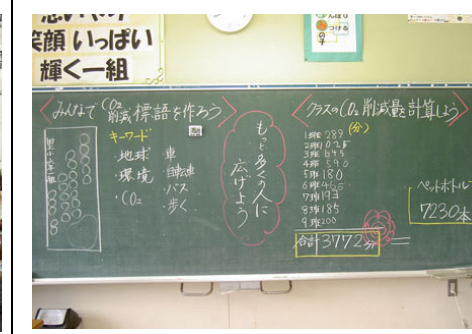 思いやり
笑顔 いっぱい
輝く一組
つける
の子
みんなで CO₂ 削減標語を作ろう
キーワード
・地球
・環境
・CO₂
車
・自転車
・バス
・歩く
もっと多くの人に
広げよう
クラスのCO₂削減量を計算しよう
(分)
1班 289
2班 1025
3班 645
4班 590
5班 180
6班 465
7班 193
8班 185
9班 200
合計 3772分
ペットボトル
7230本